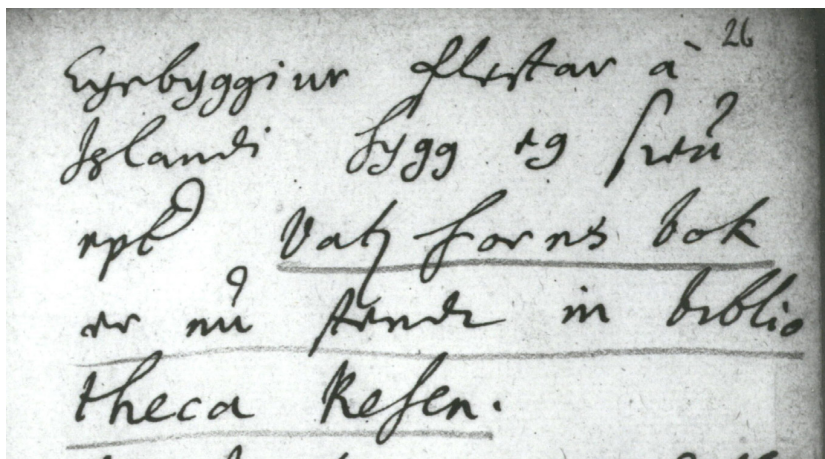 26
Eyrbyggiur flestar à
Islandi hygg eg sieu
ept Vatz horns bok
er nu stendr in biblio
theca Resen.